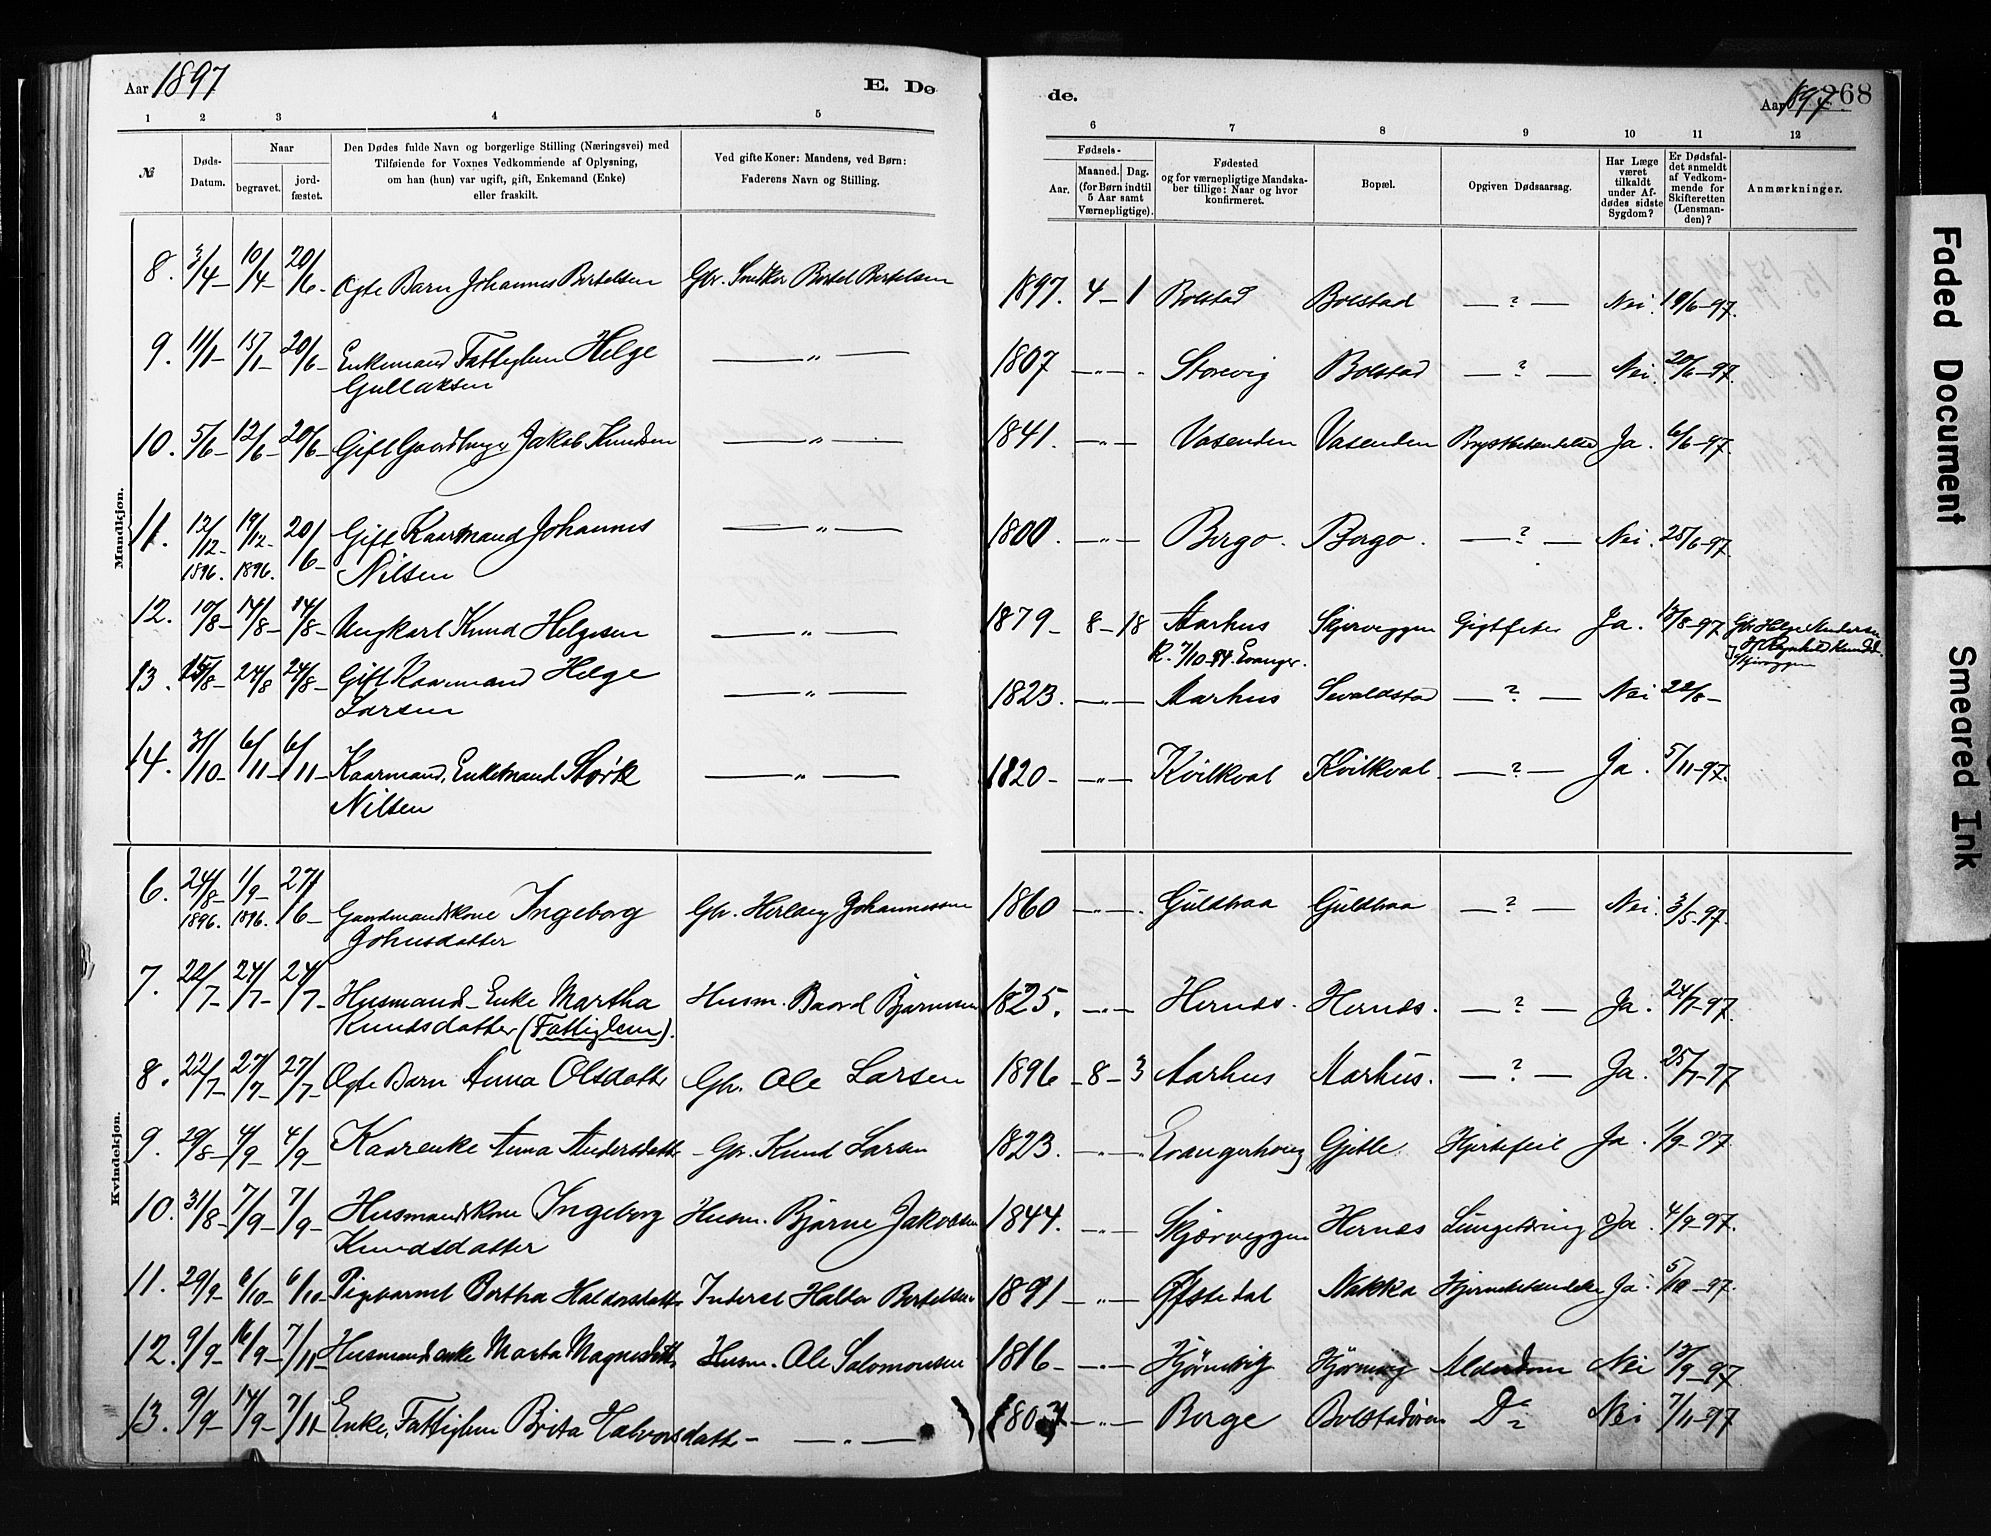 Aar 1897
E. Dø
de.
Aar 1897
268
1 2 3 4 5 6 7 8 9 10 11 12
№
Døds-Datum.
Naar
begravet.
jord-fæstet.
Den Dødes fulde Navn og borgerlige Stilling (Næringsvei) med
Tilføiende for Voxnes Vedkommende af Oplysning,
om han (hun) var ugift, gift, Enkemand (Enke)
eller fraskilt.
Ved gifte Koner: Mandens, ved Børn:
Faderens Navn og Stilling.
Fødsels-
Aar.
Maaned. Dag.
(for Børn indtil
5 Aar samt
Værnepligtige).
Fødested
og for værnepligtige Mandska-
ber tillige: Naar og hvor
konfirmeret.
Bopæl.
Opgiven Dødsaarsag.
Har Læge
været
tilkaldt
under Af-
dødes sidste
Sygdom?
Er Dødsfal-
det anmeldt
af Vedkom-
mende for
Skifteretten
(Lensman-
den)?
Anmærkninger.
Mandkjøn.
8. 3/4- 10/4- 20/6- Ægte Barn Johannes Bertelsen Gbr. Snedker Bertel Bertelsen 1897. 4-1 Bolstad Bolstad —?— Nei. 19/6-97.
9. 11/1- 15/1- 20/6- Enkemand, Fattiglem Helge —"— 1807 —"— Storevig Bolstad —?— Nei. 20/6-97.
Gullaksen
10. 5/6- 12/6- 20/6- Gift Gaardbruger Jakob Knudsen —"— 1841. —"— Vasenden Vasenden Brystbetændelse Ja. 6/6-97.
11. 12/12- 19/12- 20/6- Gift Kaarmand Johannes —"— 1800. —"— Berge. Berge. —?— Nei. 25/6-97.
1896. 1896. Nilsen
12. 10/8- 14/8- 14/8- Ungkarl Knud Helgesen —"— 1879- 8-18 Aarhus Skjerveggen Gigtfeber Ja. 13/8-97 Gbr. Helge Andersen
K. 7/10-94. Evanger. og Ragnhild Knudsd.
Skjerveggen
13. 15/8- 24/8 24/8- Gift Kaarmand Helge —"— 1823. —"— Aarhus Sevaldstad —?— Nei 22/8-
Larsen
14. 31/10- 6/11- 6/11- Kaarmand, Enkemand Størk —"— 1820- —"— Kvilkval Kvilkval. —?— Ja. 5/11-97.
Nilsen
Kvindekjøn.
6. 24/8- 1/9- 27/6- Gaardmandskone Ingeborg Gbr. Herlaug Johannessen 1860 —"— Guldbraa Guldbraa —?— Nei. 3/5-97.
1896. 1896. Johnsdatter
7. 22/7- 24/7- 24/7- Husmands Enke Martha Husm. Baard Bjørnsen 1825. —"— Hernes. Hernes. —?— Ja. 24/7-97.
Knudsdatter (Fattiglem).
8. 22/7- 27/7- 27/7- Ægte Barn Anna Olsdatter Gbr. Ole Larsen 1896-8-3 Aarhus Aarhus. —?— Ja. 25/7-97
9. 29/8- 4/9- 4/9- Kaarenke Anna Andersdatter - Gbr. Knud Larsen 1823. —"— Evangerhoug Gjitle. Hjertefeil Ja. 1/9-97
10. 31/8- 7/9- 7/9- Husmandskone Ingeborg Husm. Bjørne Jakobsen 1844. —"— Skjerveggen Hernes Lungetæring Ja. 4/9-97.
Knudsdatter
11. 29/9- 6/10- 6/10- Pigebarnet Bertha Haldorsdatter Inderst Haldor Bertelsen 1891- —"— Øfstedal Nakka Hjernebetændelse Ja. 5/10-97.
12. 9/9- 16/9- 7/11- Husmandsenke Marta Magnesdatter Husm. Ole Salomonsen 1816- —"— Hjørnevig Hjørnevig Alderdom Nei 12/9-97
13. 9/9- 14/9- 7/11- Enke, Fattiglem Brita Halvorsdatter- —"— 1807 —"— Berge Bolstadøren Do Nei 7/11-97
Faded Document
Smeared Ink